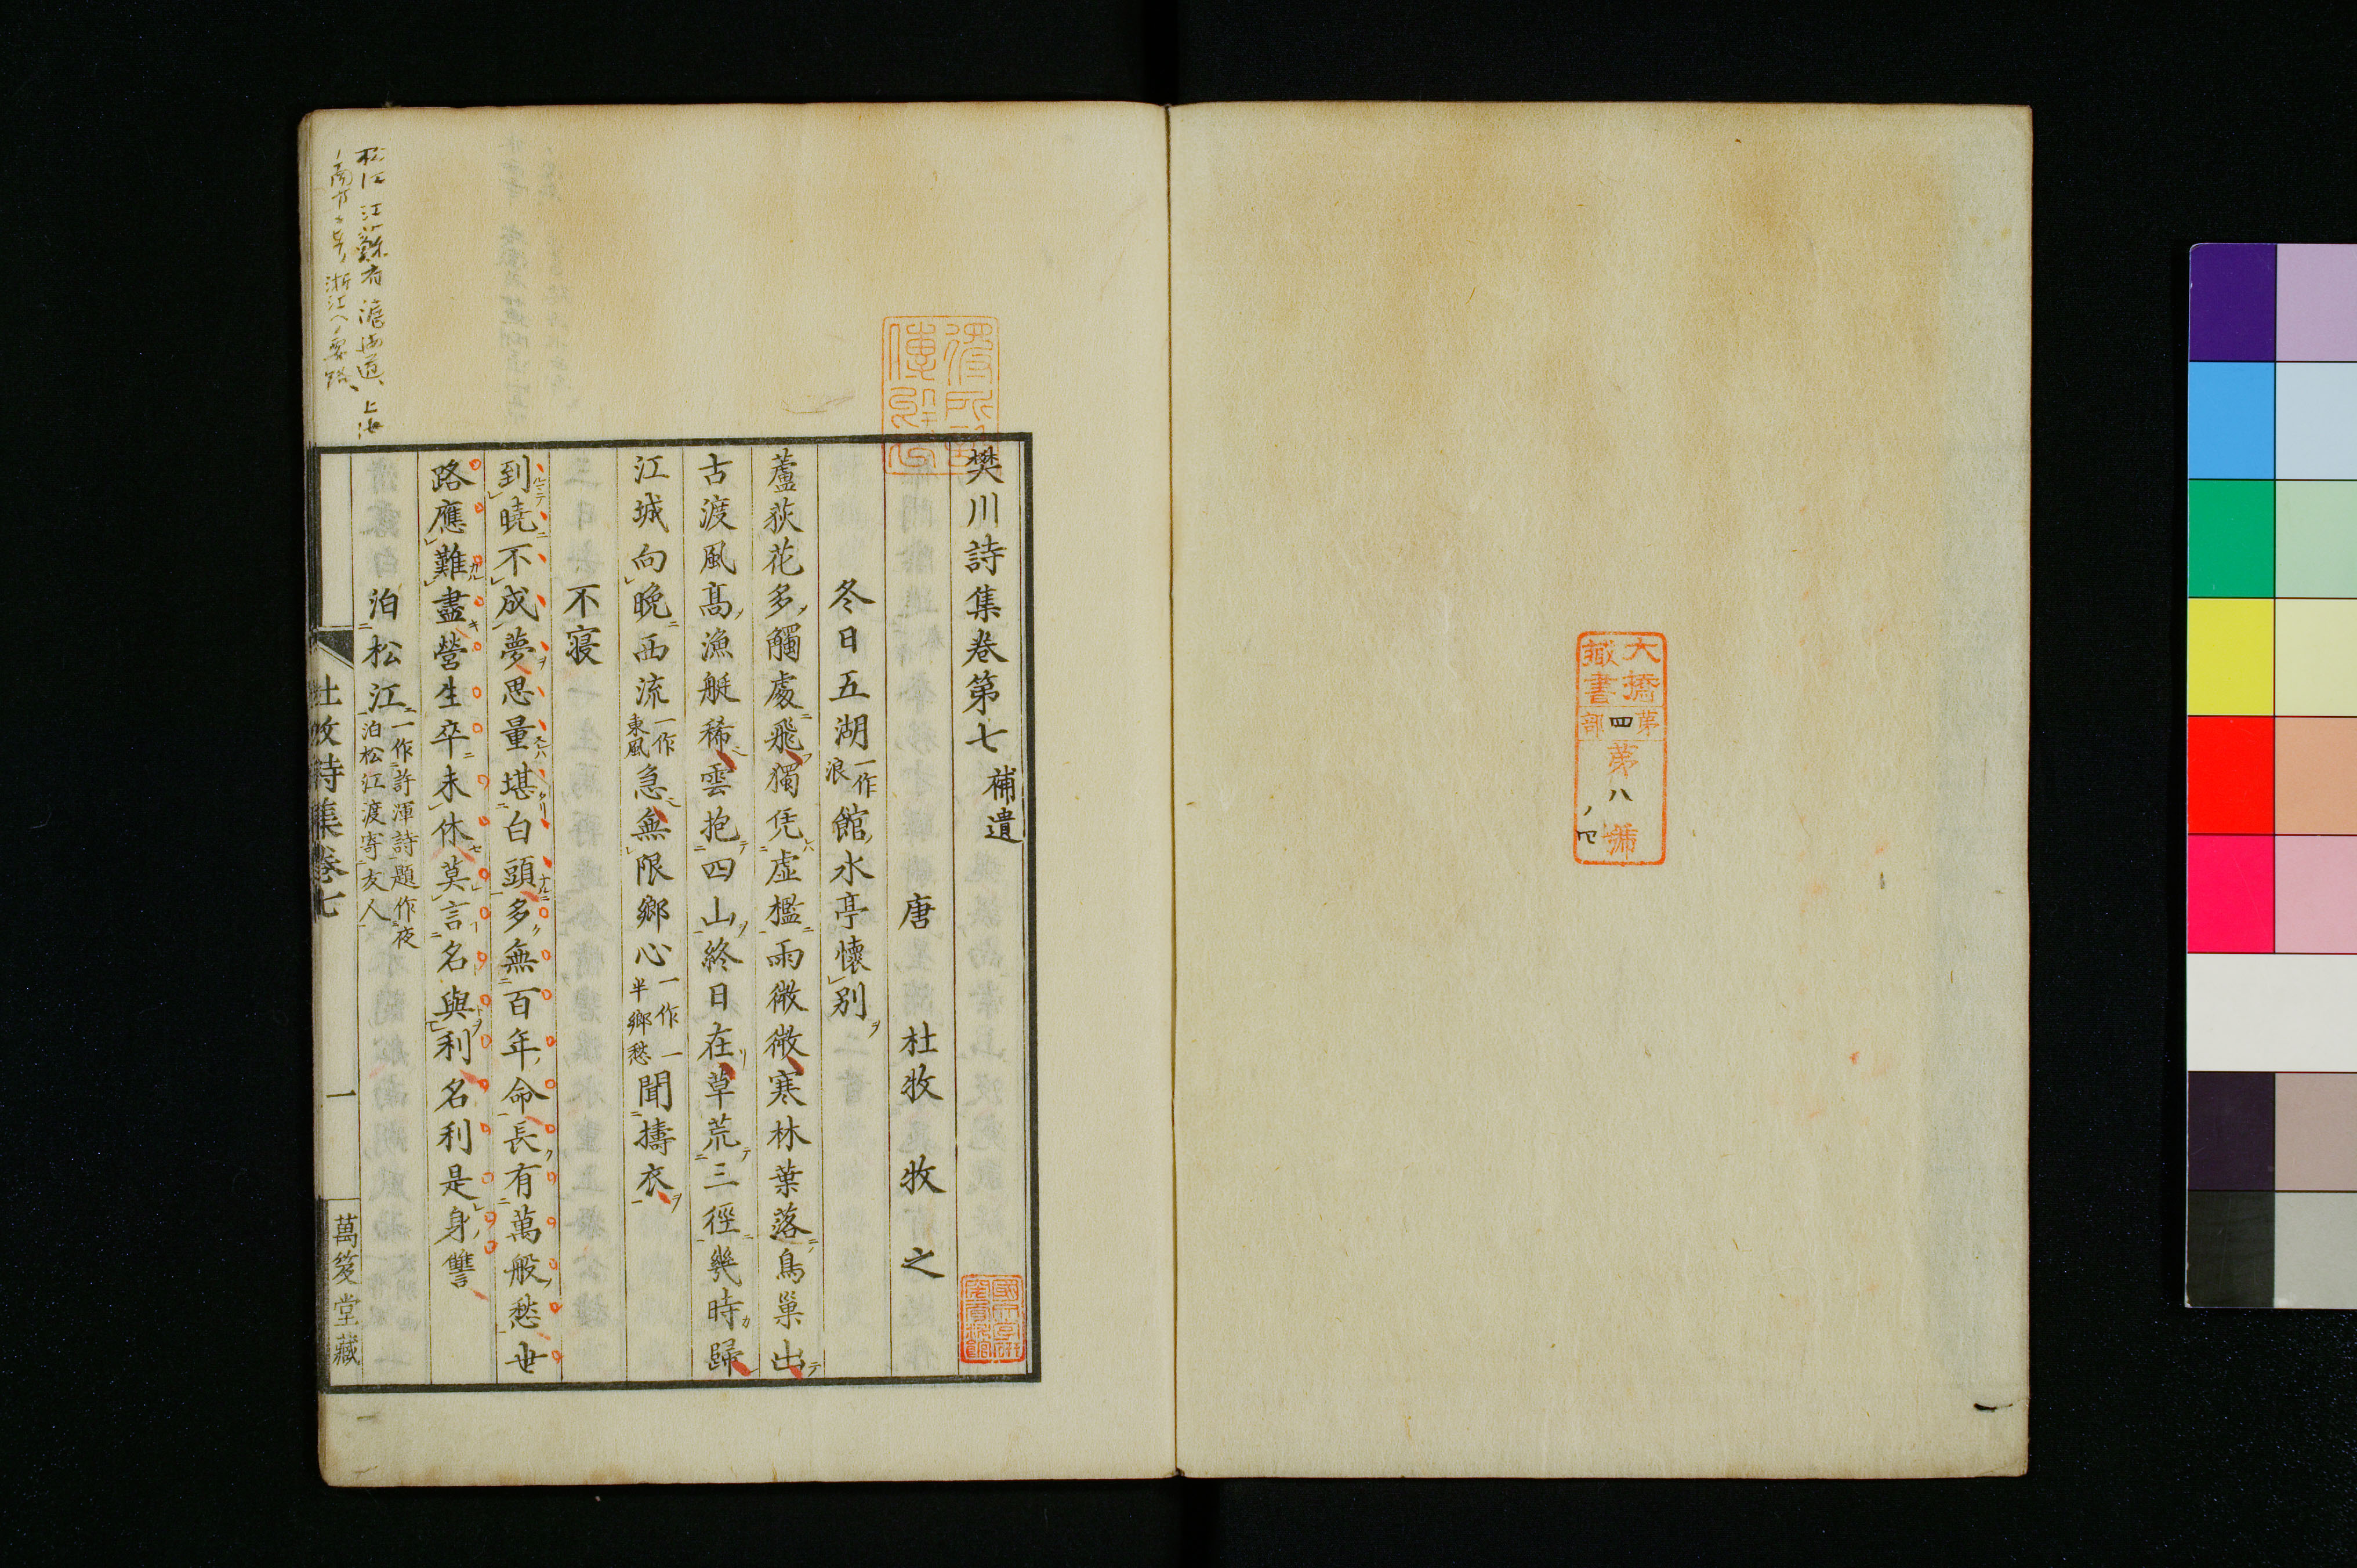 大橋
藏書
第四部
第八號
ノ四
樊川詩集卷第七 補遺
唐 杜牧 牧之
冬日五湖一作浪館水亭懷別
蘆荻花多觸處飛獨凭虛檻雨微微寒林葉落鳥巢出
古渡風高漁艇稀雲抱四山終日在草荒三徑幾時歸
江城向晚西流一作東風急無限鄉心一作一半鄉愁聞擣衣
不寝
到曉不成夢思量堪白頭多無百年命長有萬般愁世
路應難盡營生卒未休莫言名與利名利是身讐
泊松江一作許渾詩題作夜泊松江渡寄友人
杜牧詩集卷七
一
萬笈堂藏
松江 江蘇省滬海道、上海
浙江ヘノ要路、